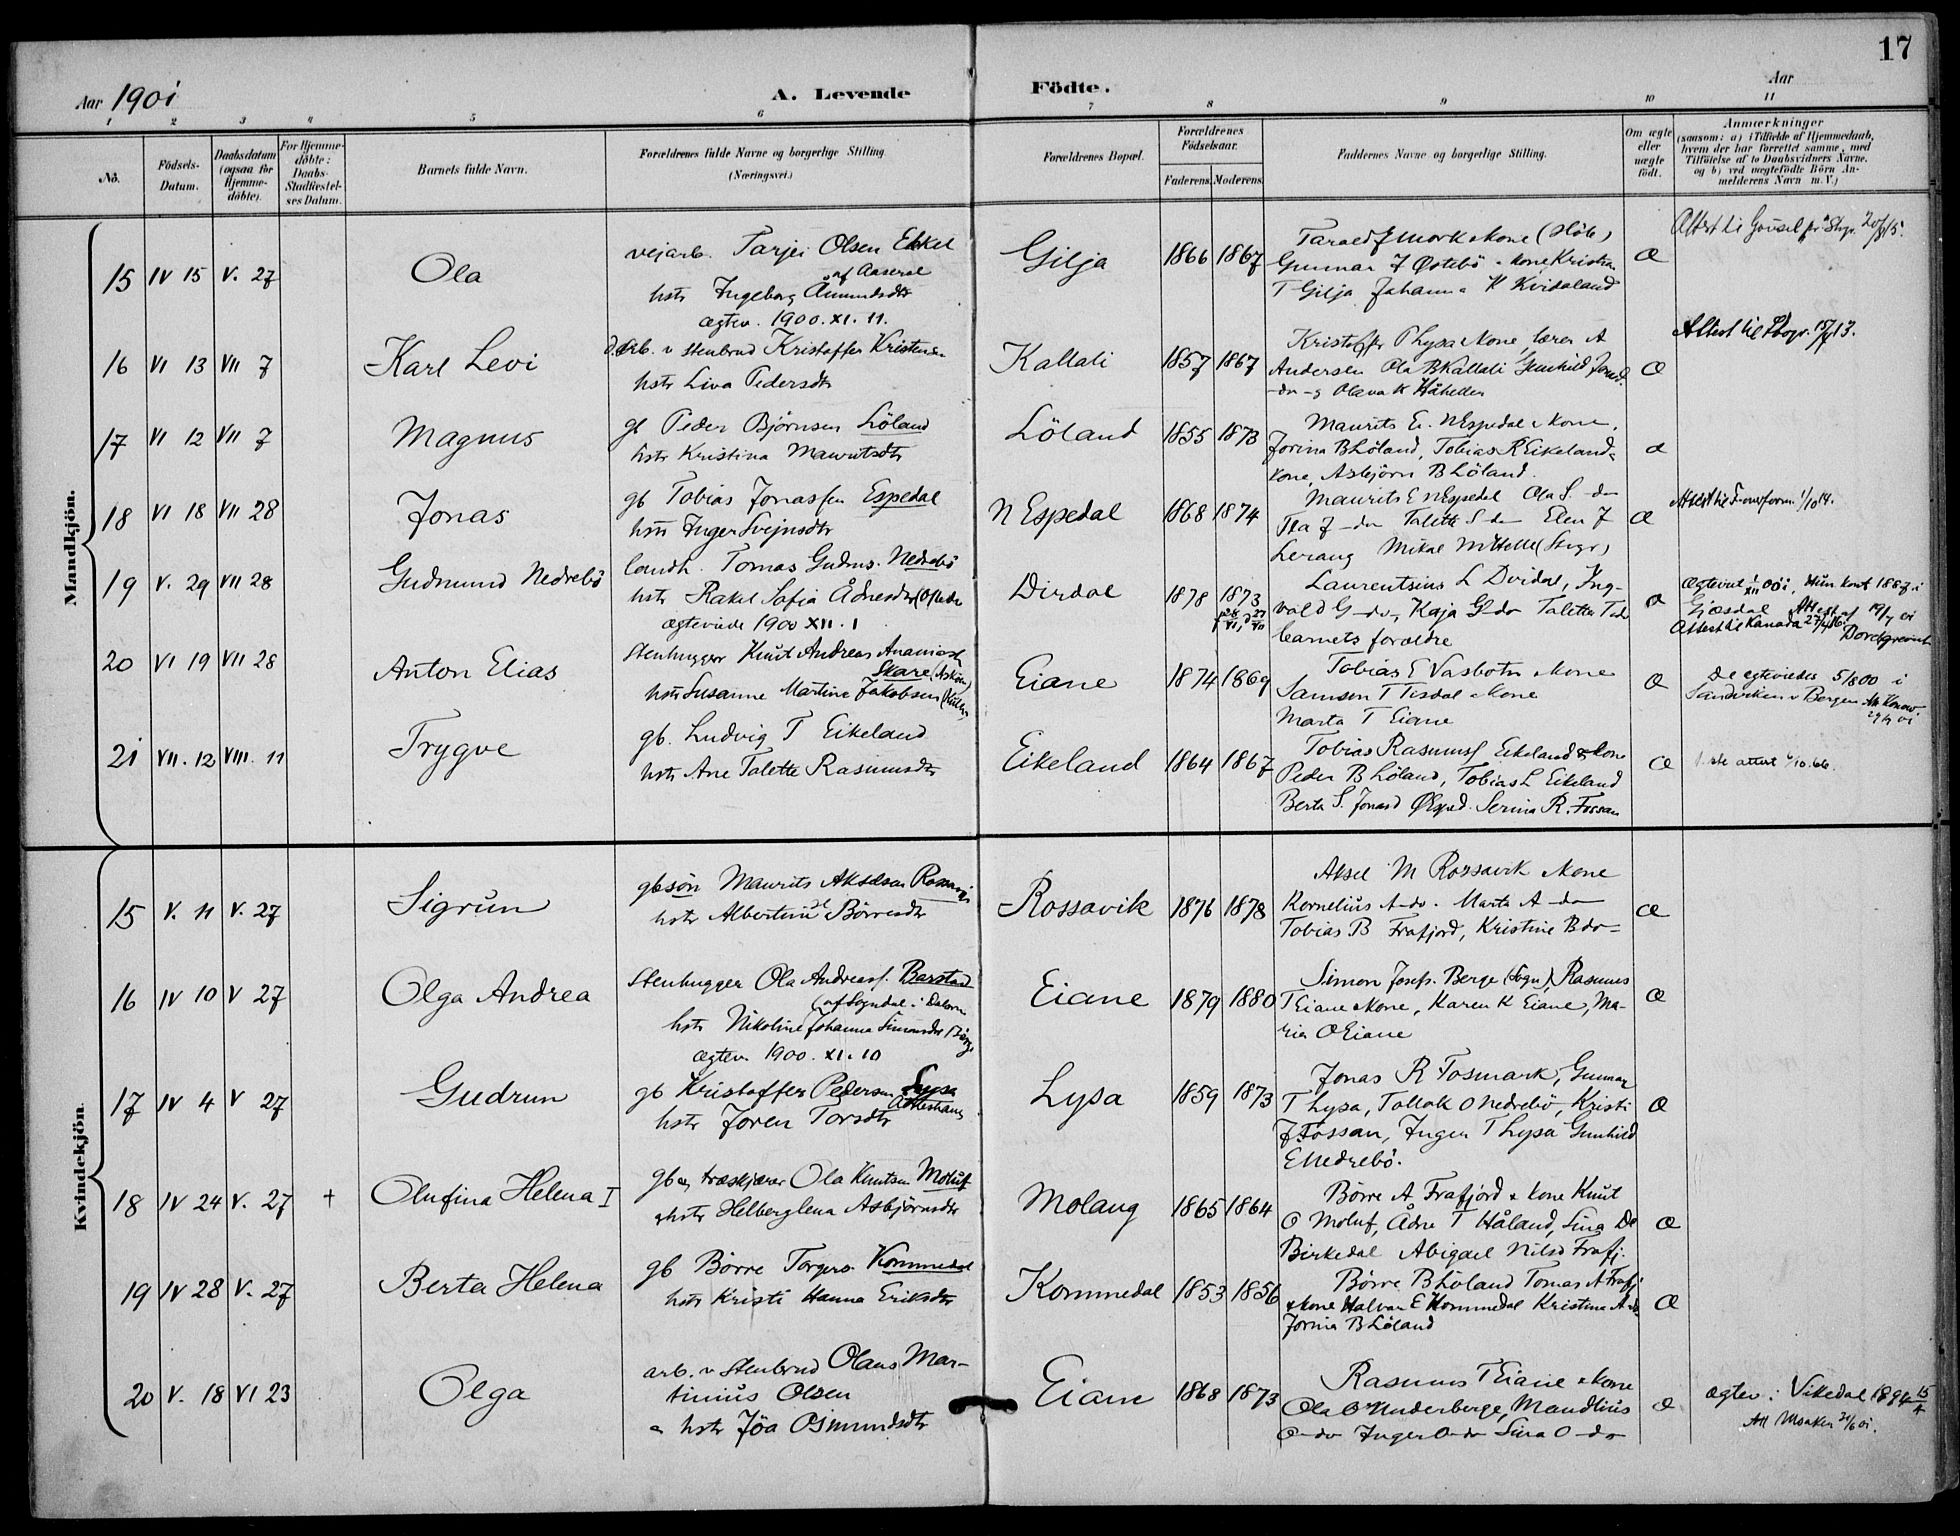 17
Aar 1901
A. Levende
Födte.
Aar
1 2 3 4 5 6 7 8 9 10 11
No.
Födsels-Datum.
Daabsdatum (ogsaa for Hjemme-döbte).
For Hjemme-döbte: Daabs-Stadfæstel-ses Datum.
Barnets fulde Navn.
Forældrenes fulde Navne og borgerlige Stilling (Næringsvei.)
Forældrenes Bopæl.
Forældrenes Födselsaar.
Faderens. Moderens.
Faddernes Navne og borgerlige Stilling.
Om ægte eller uægte födt.
Anmærkninger
(saasom: a) i Tilfælde af Hjemmedaab,
hvem der har forrettet samme, med
Tilföielse af to Daabsvidners Navne.
og b) ved uægtefödte Börn An-
melderens Navn m. V.)
Mandkjön.
15 IV 15 V. 27 Ola
vejarb. Tarjei Olsen
af Aaseral
hstr Ingeborg Aamundsdtr
ægtev. 1900. XI. 11.
Gilja 1866 1867
Gunnar T Østebö kone Kristin
T Gilja Johanna K Kvidaland
Æ
Attest til
16 VI 13 VII 7 Karl Levi
arb. v stenbrud Kristoffer Kristens
hstr Lina Pedersdtr
Kallali 1857 1867
Kristoffer P Lysa & kone, lærer A
Andersen Ola B Kallali Gunhild
Olava K Håheller
Æ
Attest til 15/4 13.
17 VI 12 VII 7 Magnus
gb Peder Bjørnsen Löland
hstr Kristina Mauritsdtr
Löland 1855 1873
Maurits E. NEspedal & kone,
Jorina B Löland, Tobias R Eikeland &
kone, Asbjörn B Löland.
Æ
18 VI 18 VII 28 Jonas
gb Tobias Jonassen Espedal
hstr Inger Svejnsdtr
N Espedal 1868 1874
Maurits E NEspedal Ola S. do
Ela J do Talette S do Elen J
Lerang Mikal
Æ
Attest til 1/10 14.
19 V. 29 VII 28 Gudmund Nedrebö
landh. Tomas Gudms. Nedrebö
hstr Rakel Sofia Ådnesdtr (Oftedal
ægteviede 1900 XII. 1
Dirdal 1878 1873
Laurentsius L Dirdal, Ing-
vald G do, Kaja G do Talette T do
barnets forældre
Æ
Hun konf 1887 i
Gjesdal Attest af 19/7 01
Attest til Kanada
20 VI 19 VII 28 Anton Elias
Stenhugger Knut Andreas Ananias
Skare (Askim)
hstr Susanne Martine Jakobsen
Eiane 1874 1869
Tobias E Vasbotn & kone
Samson T Tisdal & kone
Marta T Eiane
Æ
De ægteviedes 5/8 00 i
Sandviken v Bergen Att Konow
21 VII. 12 VIII. 11 Trygve
gb. Ludvig T Eikeland
hstr Ane Talette Rasmusdtr
Eikeland 1864 1867
Tobias Rasmuss Eikeland & kone
Peder B Löland, Tobias L Eikeland
Berta S. Jonas Ø Espd. Serina R. Fossan
Æ
attest 6/10.66.
Kvindekjön.
15 V. 11 V. 27 Sigrun
gbsön Maurits Akselsen Rossavik
hstr Albertine Börresdtr
Rossavik 1876 1878
Aksel M Rossavik & kone
Kornelius A do. Marta A do
Tobias B Frafjord, Kristine B do
Æ
16 IV 10 V 27 Olga Andrea
Stenhugger Ola Andreass. Barstad
(af Sogndal i Dalerne
hstr Nikoline Johanna Simonsdtr Berge
ægtev. 1900. XI. 10
Eiane 1879 1880
Simon Josefs. Berge (Sogn), Rasmus
T Eiane & kone, Karen K Eiane, Ma-
ria O Eiane
Æ
17 IV 4 V 27 Gudrun
gb Kristoffer Pedersen Lysa
hstr Joren Torsdtr
Lysa 1859 1873
Jonas R Fosmark, Gunnar
T Lysa, Tollak O Nedrebö, Kristi
J Fossan, Inger T Lysa Gunhild
E Nedrebö.
Æ
18 IV 24 V. 27 + Olufina Helena I
gb og træskjærer Ola Knutsen Moluf
& hstr Helberglena Asbjörnsdtr
Molaug 1865 1864
Börre A Frafjord & kone Knut
O Moluf, Ådne T Håland, Sina
Birkedal Abigael Nilsd Frafj.
Æ
19 IV 28 V. 27 Berta Helena
gb Börre Torgers. Kommedal
hstr Kristi Hanna Eriksdtr
Kommedal 1853 1856
Börre B Löland Tomas A Frafj
& kone Halvar E Kommedal Kristina A do
Jorina B Löland
Æ
20 V. 18 VI 23 Olga
arb. v Stenbrud Olaus Mar-
tinius Olsen
& hstr Jöa Osmundsdtr
Eiane 1868 1873
Rasmus T Eiane & kone
Ola O Underberge, Mandlius
O do Inger O do Sina O do
Æ
ægtev. i Vikedal 1894 15/4